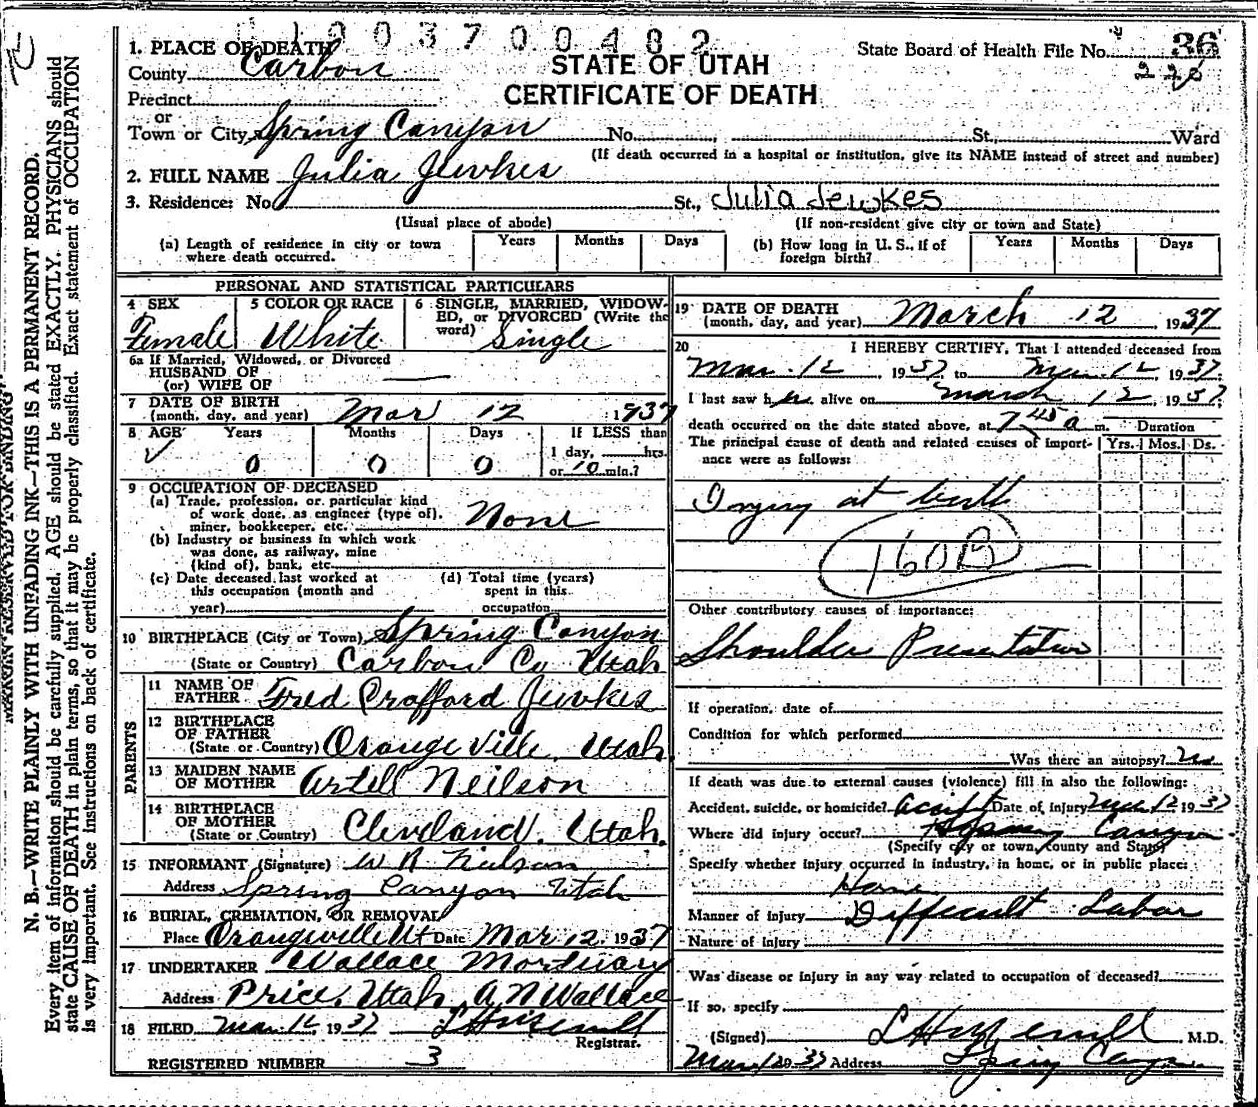 1 0 0 3 7 0 0 4 8 2
1. PLACE OF DEATH
County Carbon
State Board of Health File No. 36
STATE OF UTAH
CERTIFICATE OF DEATH
Precinct
or
Town or City Spring Canyon No. St. Ward
(If death occurred in a hospital or institution, give its NAME instead of street and number)
2. FULL NAME Julia Jewkes
3. Residence: No. St., Julia Jewkes
(Usual place of abode) (If non-resident give city or town and State)
(a) Length of residence in city or town where death occurred. Years Months Days
(b) How long in U. S., if of foreign birth? Years Months Days
PERSONAL AND STATISTICAL PARTICULARS
4 SEX Female
5 COLOR OR RACE White
6 SINGLE, MARRIED, WIDOWED, or DIVORCED (Write the word) Single
6a If Married, Widowed, or Divorced
HUSBAND OF
(or) WIFE OF
7 DATE OF BIRTH
(month, day, and year) Mar 12 1937
8 AGE Years Months Days If LESS than
0 0 0 1 day, hrs.
or 10 min.?
9 OCCUPATION OF DECEASED
(a) Trade, profession, or particular kind
of work done, as engineer (type of),
miner, bookkeeper, etc. None
(b) Industry or business in which work
was done, as railway, mine
(kind of), bank, etc.
(c) Date deceased last worked at
this occupation (month and
year)
(d) Total time (years)
spent in this
occupation
10 BIRTHPLACE (City or Town) Spring Canyon
(State or Country) Carbon Co Utah
PARENTS
11 NAME OF
FATHER Fred Crafford Jewkes
12 BIRTHPLACE
OF FATHER
(State or Country) Orangeville, Utah
13 MAIDEN NAME
OF MOTHER Artell Neilson
14 BIRTHPLACE
OF MOTHER
(State or Country) Cleveland, Utah.
15 INFORMANT (Signature) W R Neilson
Address Spring Canyon Utah
16 BURIAL, CREMATION, OR REMOVAL
Place Orangeville Ut Date Mar 12, 1937
17 UNDERTAKER Wallace Mortuary
Address Price, Utah A N Wallace
18 FILED Mar. 12, 1937
Registrar.
REGISTERED NUMBER 3
19 DATE OF DEATH
(month, day, and year) March 12 1937
20 I HEREBY CERTIFY, That I attended deceased from
Mar. 12, 1937 to Mar. 12, 1937.
I last saw her alive on March 12, 1937
death occurred on the date stated above, at 7 45 a m. Duration
The principal cause of death and related causes of importance were as follows: Yrs. Mos. Ds.
Injury at birth
160B
Other contributory causes of importance:
Shoulder Presentation
If operation, date of
Condition for which performed
Was there an autopsy? no
If death was due to external causes (violence) fill in also the following:
Accident, suicide, or homicide? Accident Date of injury Mar. 12 1937
Where did injury occur? Spring Canyon
(Specify city or town, county and State)
Specify whether injury occurred in industry, in home, or in public place:
Home
Manner of injury Difficult Labor
Nature of injury
Was disease or injury in any way related to occupation of deceased?
If so, specify
(Signed) M.D.
Mar 12 1937 Address Spring Canyon
MARGIN RESERVED FOR BINDING
N. B.—WRITE PLAINLY WITH UNFADING INK—THIS IS A PERMANENT RECORD.
Every item of information should be carefully supplied. AGE should be stated EXACTLY. PHYSICIANS should
state CAUSE OF DEATH in plain terms, so that it may be properly classified. Exact statement of OCCUPATION
is very important. See instructions on back of certificate.